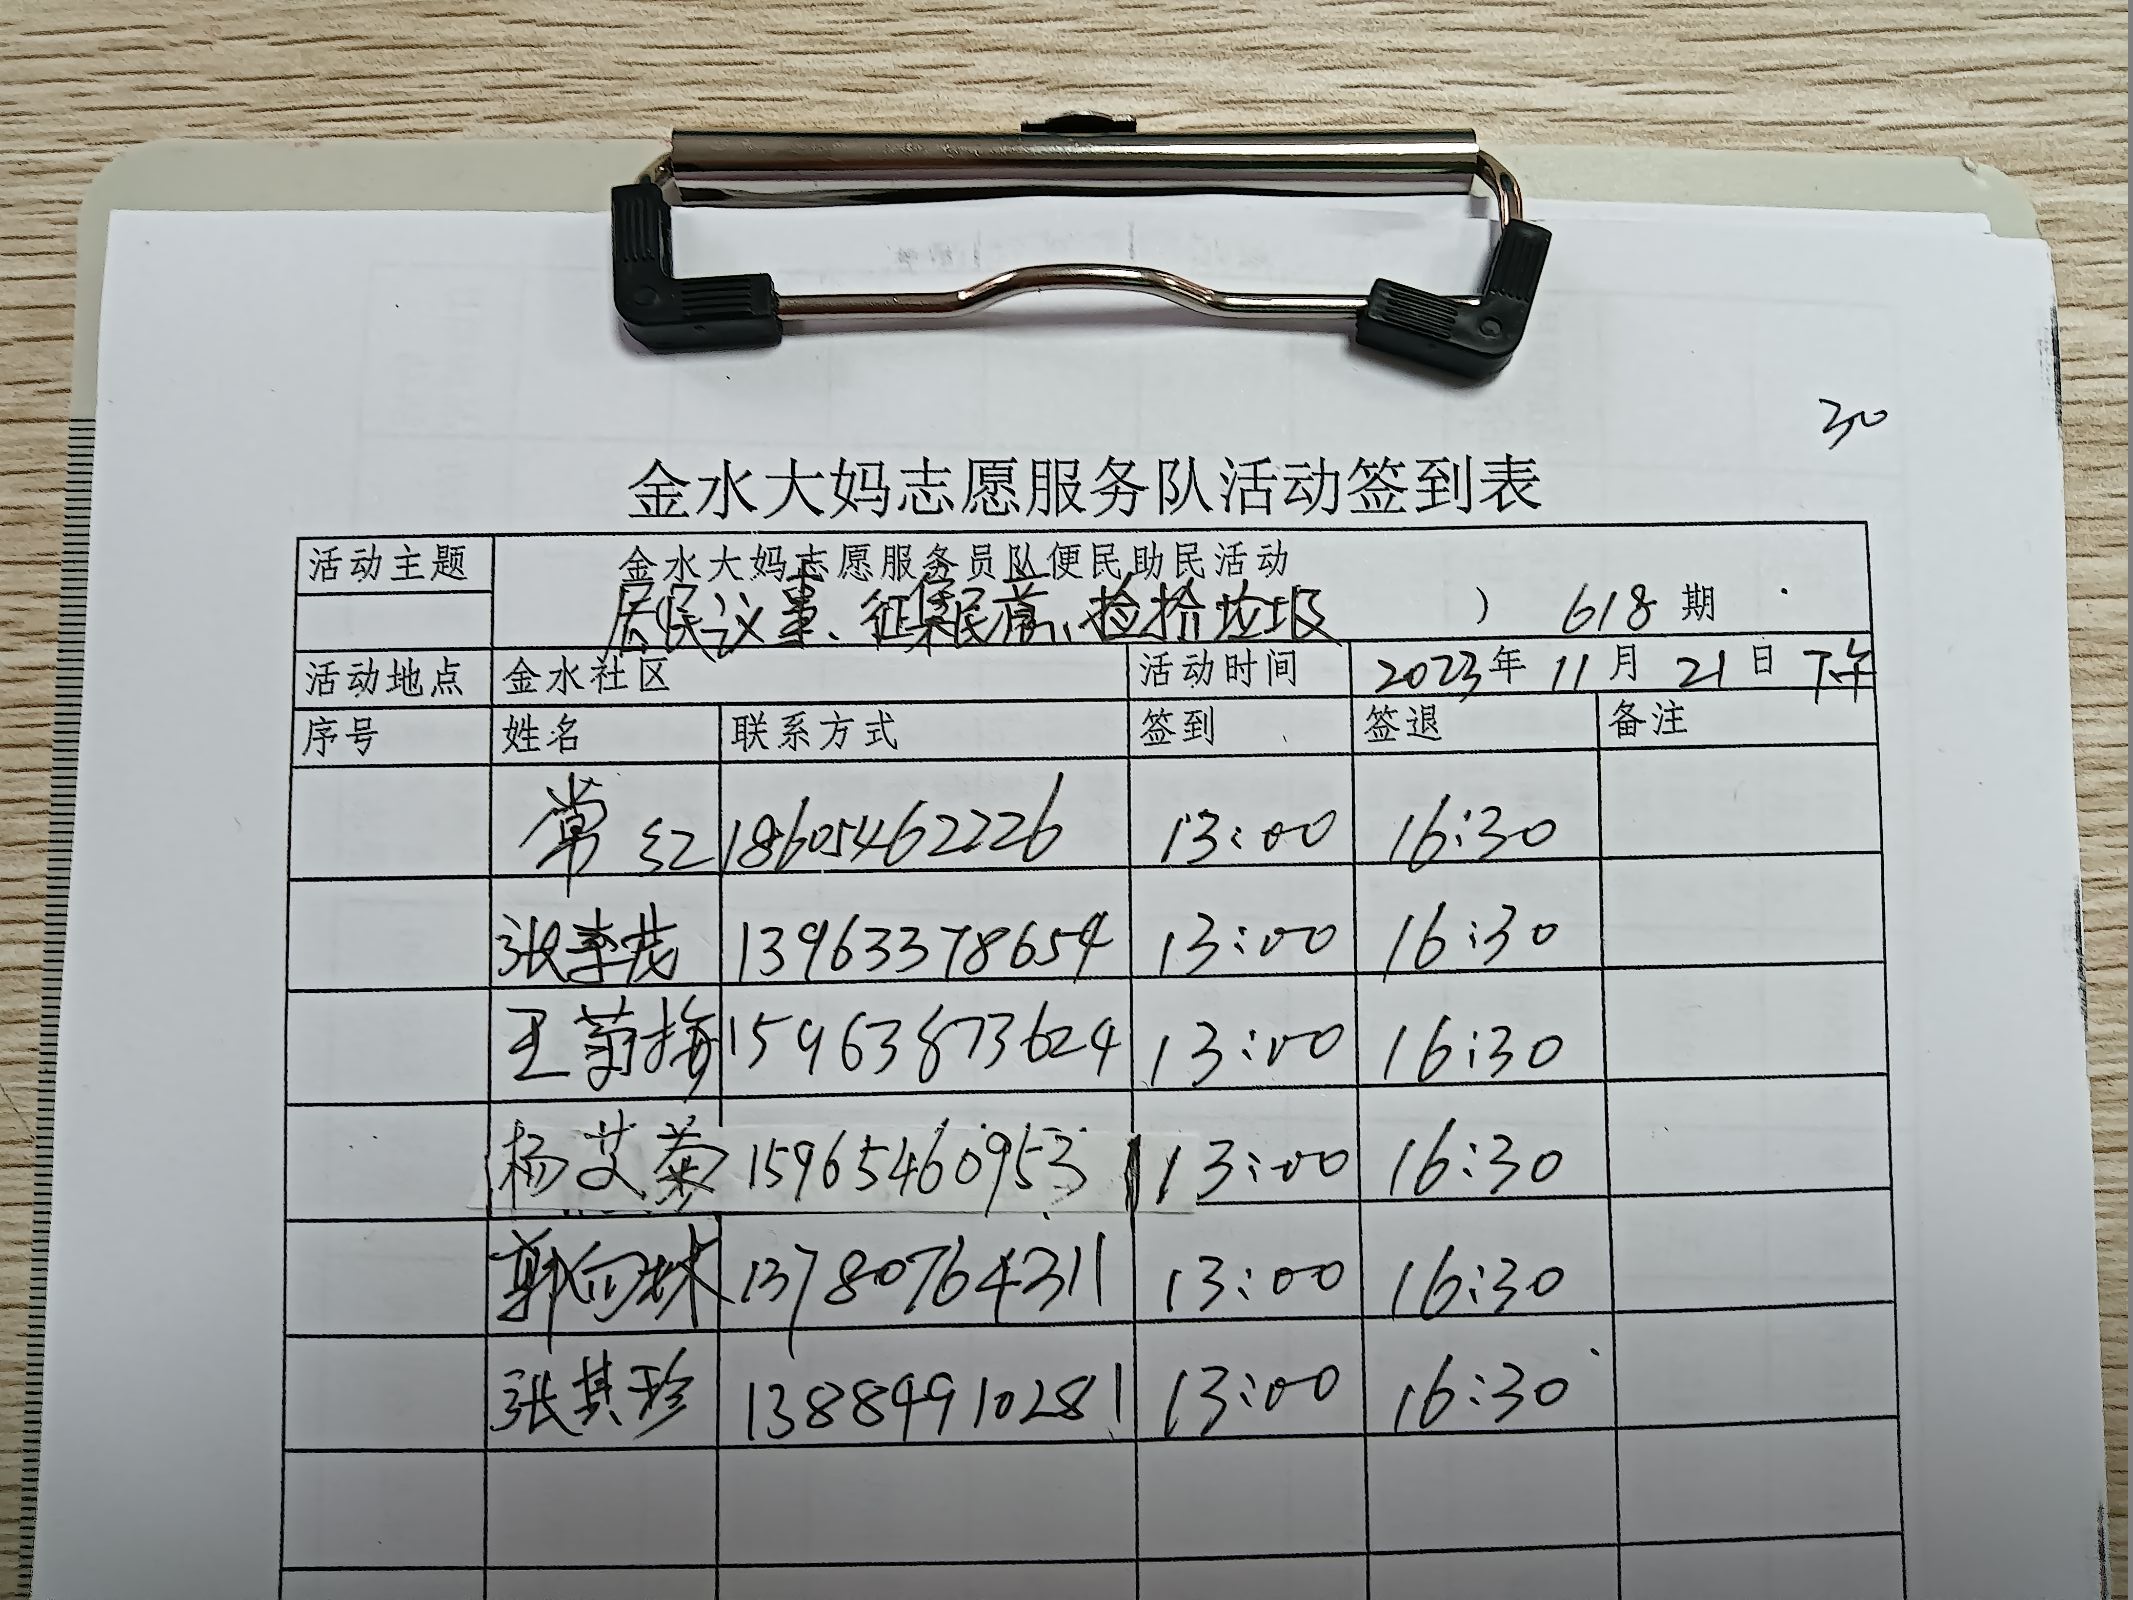 30
金水大妈志愿服务队活动签到表
活动主题 金水大妈志愿服务员队便民助民活动
居民议事、征集民意、捡拾垃圾 ） 618 期
活动地点 金水社区 活动时间 2023年 11月 21日 下午
序号 姓名 联系方式 签到 签退 备注
常红 18605462226 13:00 16:30
张李茂 13963378654 13:00 16:30
王菊梅 15963873624 13:00 16:30
杨艾菊 15965460953 13:00 16:30
郭向林 13780764311 13:00 16:30
张其珍 13884910281 13:00 16:30